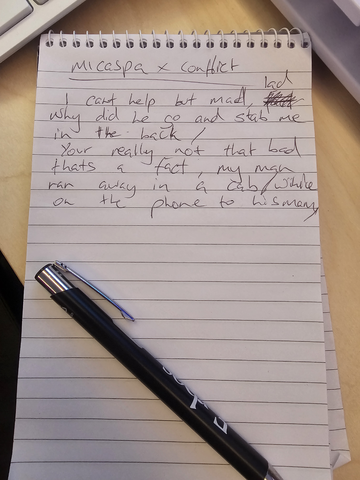 micaspa x conflict
I cant help but mad, lad
why did he go and stab me
in the back /
Your really not that bad
thats a fact, my man
ran away in a cab / while
on the phone to his mam,